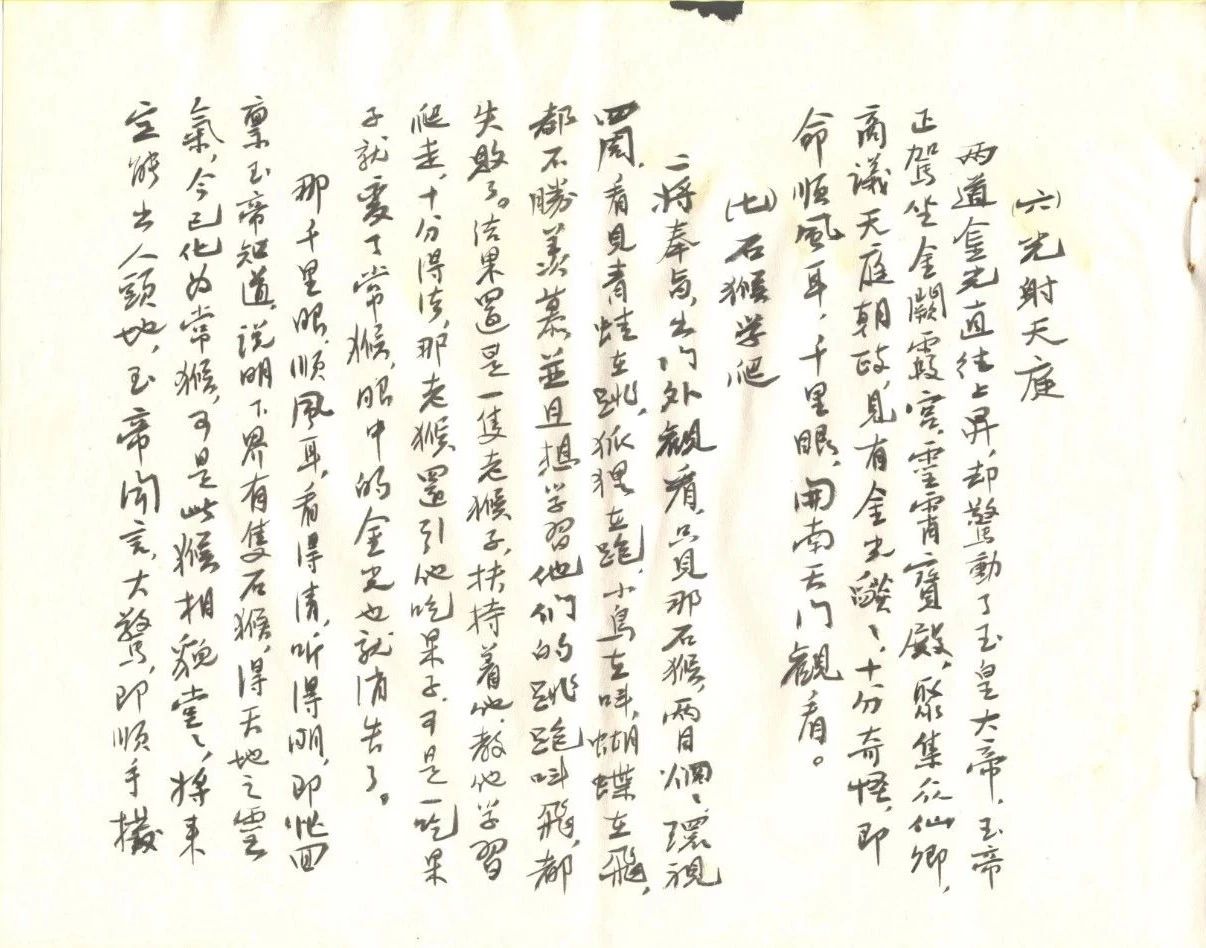 (六)光射天庭
两道金光直往上昇,却驚動了玉皇大帝,玉帝
正駕坐金闕雲宮,靈霄寶殿,聚集众仙卿,
商議天庭朝政,見有金光燄〻,十分奇怪,即
命順風耳,千里眼,開南天门觀看。
(七)石猴学爬
二将奉旨,出门外觀看,只見那石猴,两目烱〻,環視
四周,看見青蛙在跳,狐狸在跑,小鳥在叫,蝴蝶在飛,
都不勝羨慕並且想学習他們的跳跑叫飛,都
失敗了。结果還是一隻老猴子,扶持着他,教他学習
爬走,十分得法,那老猴還引他吃果子,可是一吃果
子就变了常猴,眼中的金光也就消失了。
那千里眼,順風耳,看得清,听得明,即忙回
禀玉帝知道,说明下界有隻石猴,得天地之靈
氣,今已化为常猴,可是此猴相貌堂〻,将来
定能出人頭地,玉帝闻言,大驚,即順手撥